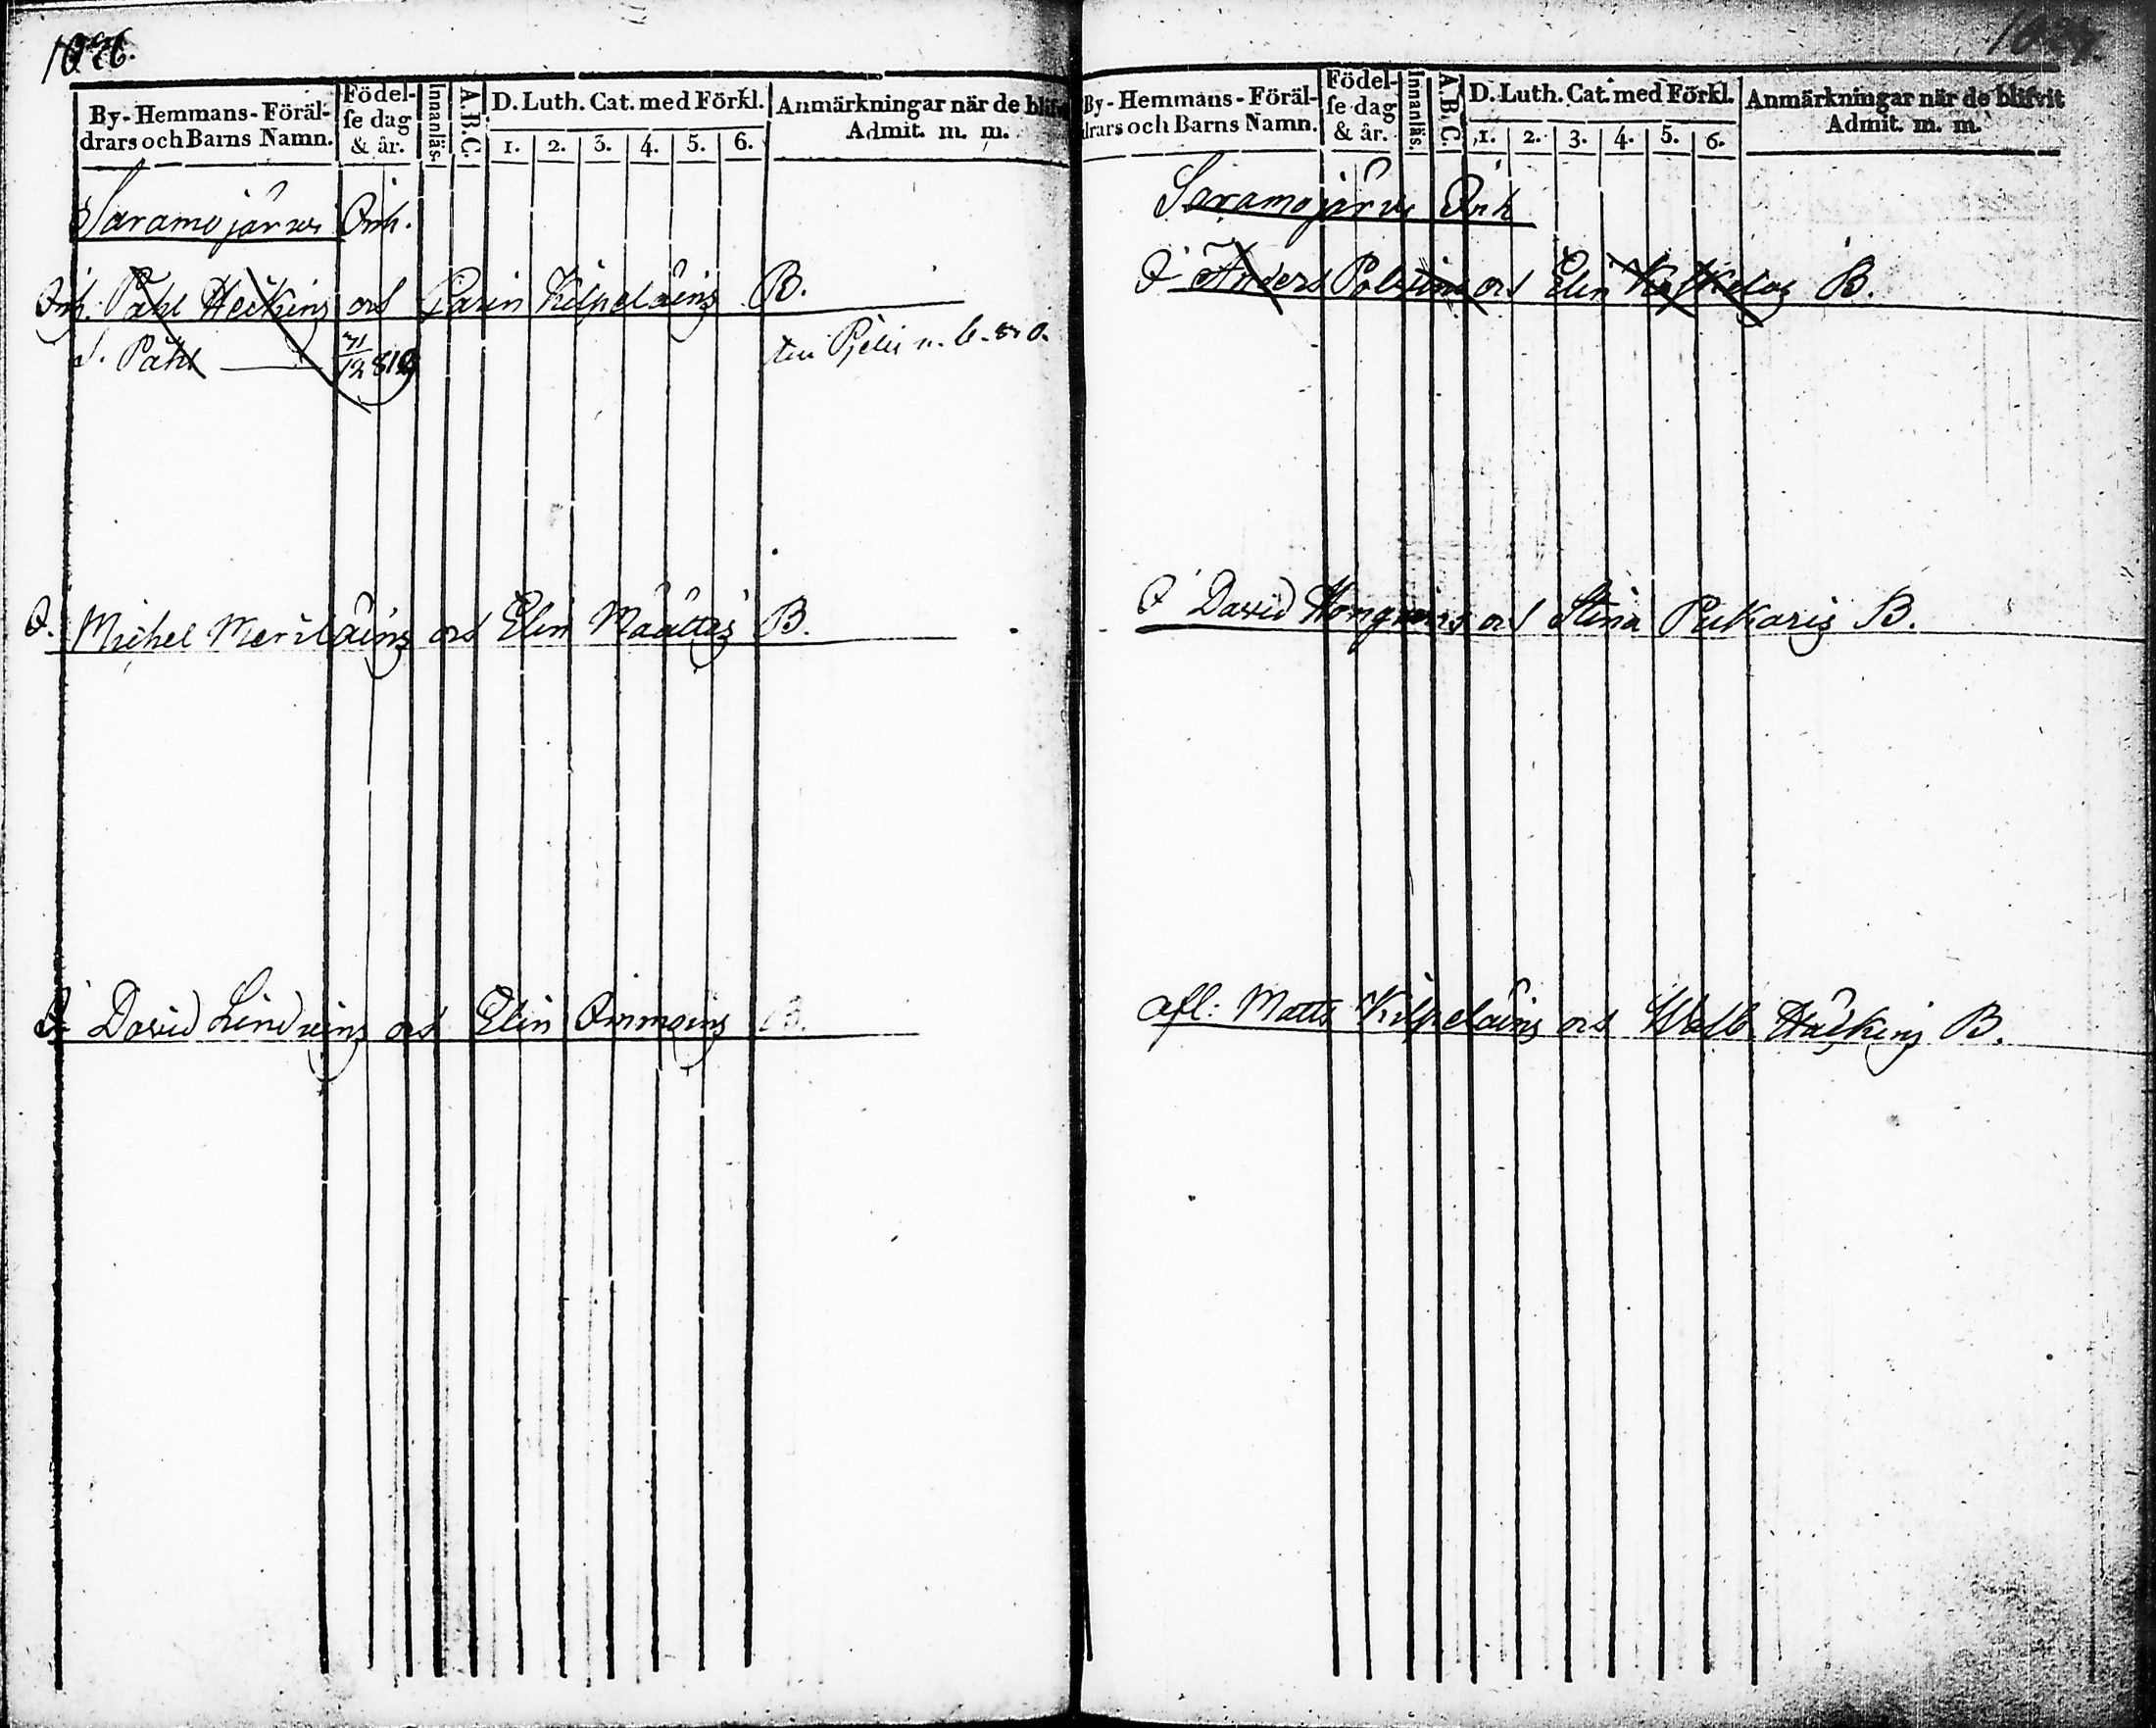 1076.
By-Hemmans-Föräl-
drars och Barns Namn.
Födel-
se dag
& år.
Innanläs.
A.B.C.
D. Luth. Cat. med Förkl.
1. 2. 3. 4. 5. 6.
Anmärkningar när de blifvit
Admit. m. m.
Saramojärvi Inh.
Inh. Påhl Heikinz och Carin Kilpeläinz B.
S. Påhl 12 819
till Pjelis n. 6. 820.
I. Michel Meriläinz och Elin Määttäz B.
I. David Lindvinz och Elin Oinmoinz B.
By-Hemmans-Föräl-
drars och Barns Namn.
Födel-
se dag
& år.
Innanläs.
A.B.C.
D. Luth. Cat. med Förkl.
1. 2. 3. 4. 5. 6.
Anmärkningar när de blifvit
Admit. m. m.
Saramojärvi Inh
I Anders och Elin B.
I David och Stina Pukariz B.
afl: Matts Kilpeläinz och Walb Häikinz B.